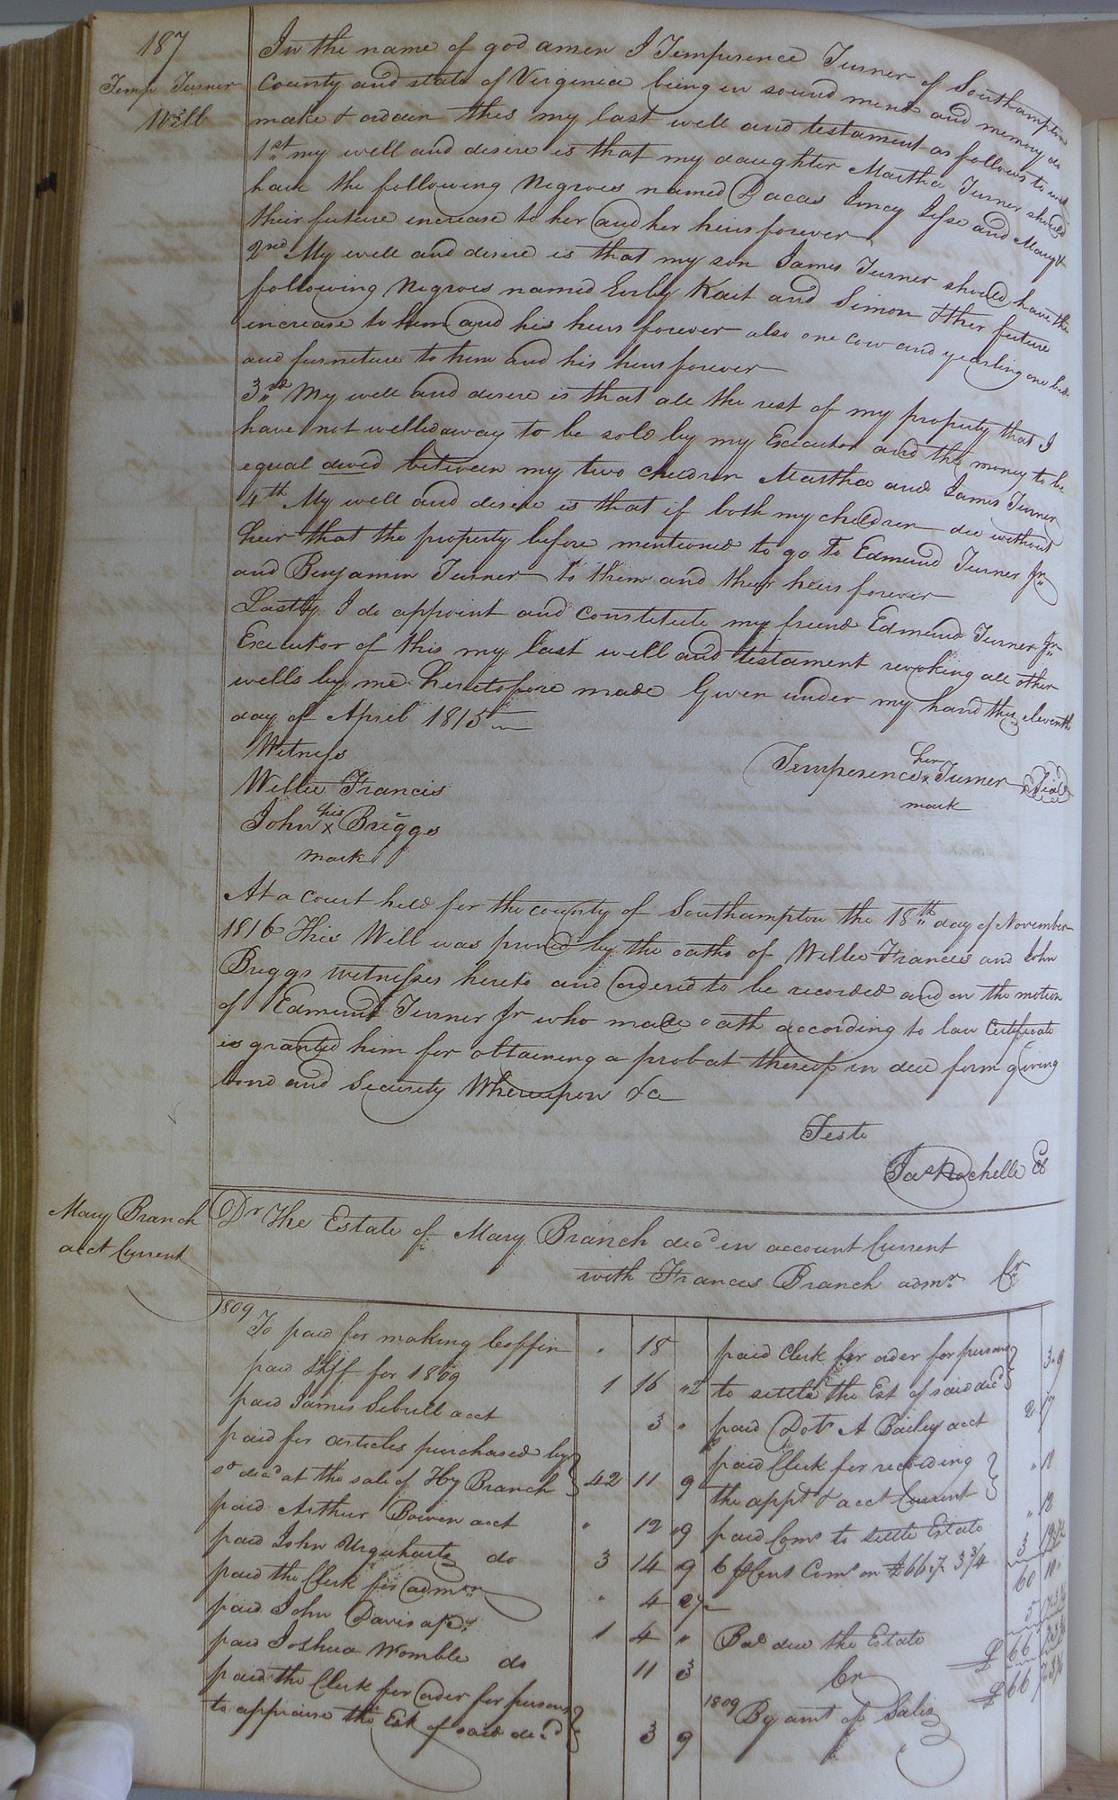 187
Temp Turner
Will
In the name of god amen I Temperence Turner of Southampton
County and state of Virginia being in sound mind and memory do
make & ordain this my last well and testament as follows to wit
1st my well and desire is that my daughter Martha Turner should
have the following Negroes named Dacas Jincy Jesse and Mary &
their future increase to her and her heirs forever
2nd My well and desire is that my son James Turner should have the
following Negroes named Kait and Simon & ther future
increase to him and his heirs forever also one cow and yearling one bed
and furneture to him and his heirs forever
3rd My well and desire is that all the rest of my property that I
have not welled away to be sold by my Executor and the money to be
equal devid between my two children Martha and James Turner
4th My well and desire is that if both my children die without
heir that the property before mentioned to go to Edmund Turner Jr
and Benjamin Turner to them and their heirs forever
Lastly I do appoint and constitute my friend Edmund Turner Jr
Executor of this my last well and testament revoking all other
wells by me heretofore made Given under my hand this eleventh
day of April 1815
Witness
Willie Francis
John his x Briggs
mark
Temperence her x Turner Seal
mark
At a court held for the county of Southampton the 18th day of November
1816 This Will was proved by the oaths of Willie Francis and John
Briggs witnesses hereto and ordered to be recorded and on the motion
of Edmund Turner Jr who made oath according to law Certificate
is granted him for obtaining a probat thereof in due form giving
bond and Security Whereupon &c
Teste
Jas Rochelle Cl
Mary Branch
acct Current
Dr The Estate of Mary Branch decd in account Current
with Frances Branch admr Cr
1809
To paid for making Coffin " 18
paid Shff for 1809 1 16 "2
paid James Sebrell acct 3 "
paid for articles purchased by
sd decd at the sale of Hy Branch 42 11 9
paid Arthur Bowen acct " 12 "9
paid John Urquhart do 3 14 9
paid the Clerk for admn " 4
paid John Davis 1 4 "
paid Joshua Womble do 11 3
paid the Clerk for order for persons
to appraise the Est of said decd 3 9
paid Clerk for order for persons
to settle the Est of said decd 3 "9
paid Dotr A Bailey acct 2 17
paid Clerk for recording
the appt & acct Current
paid Coms to settle Estate
Bal due the Estate
Cr
1809 By amt of Sales